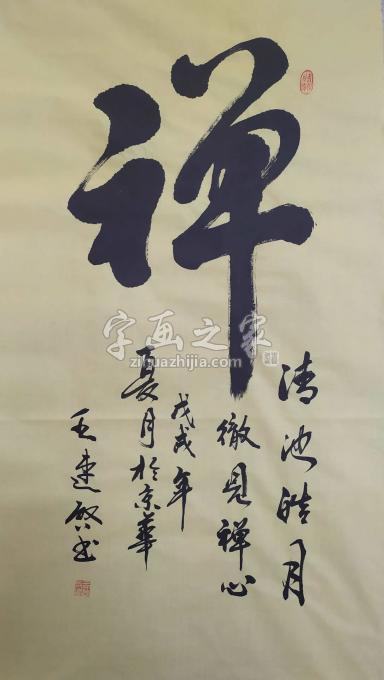 禅
清池皓月
徹見禅心
戊戌年
夏月於京華
王建 书
字画之家
zihuazhijia.com